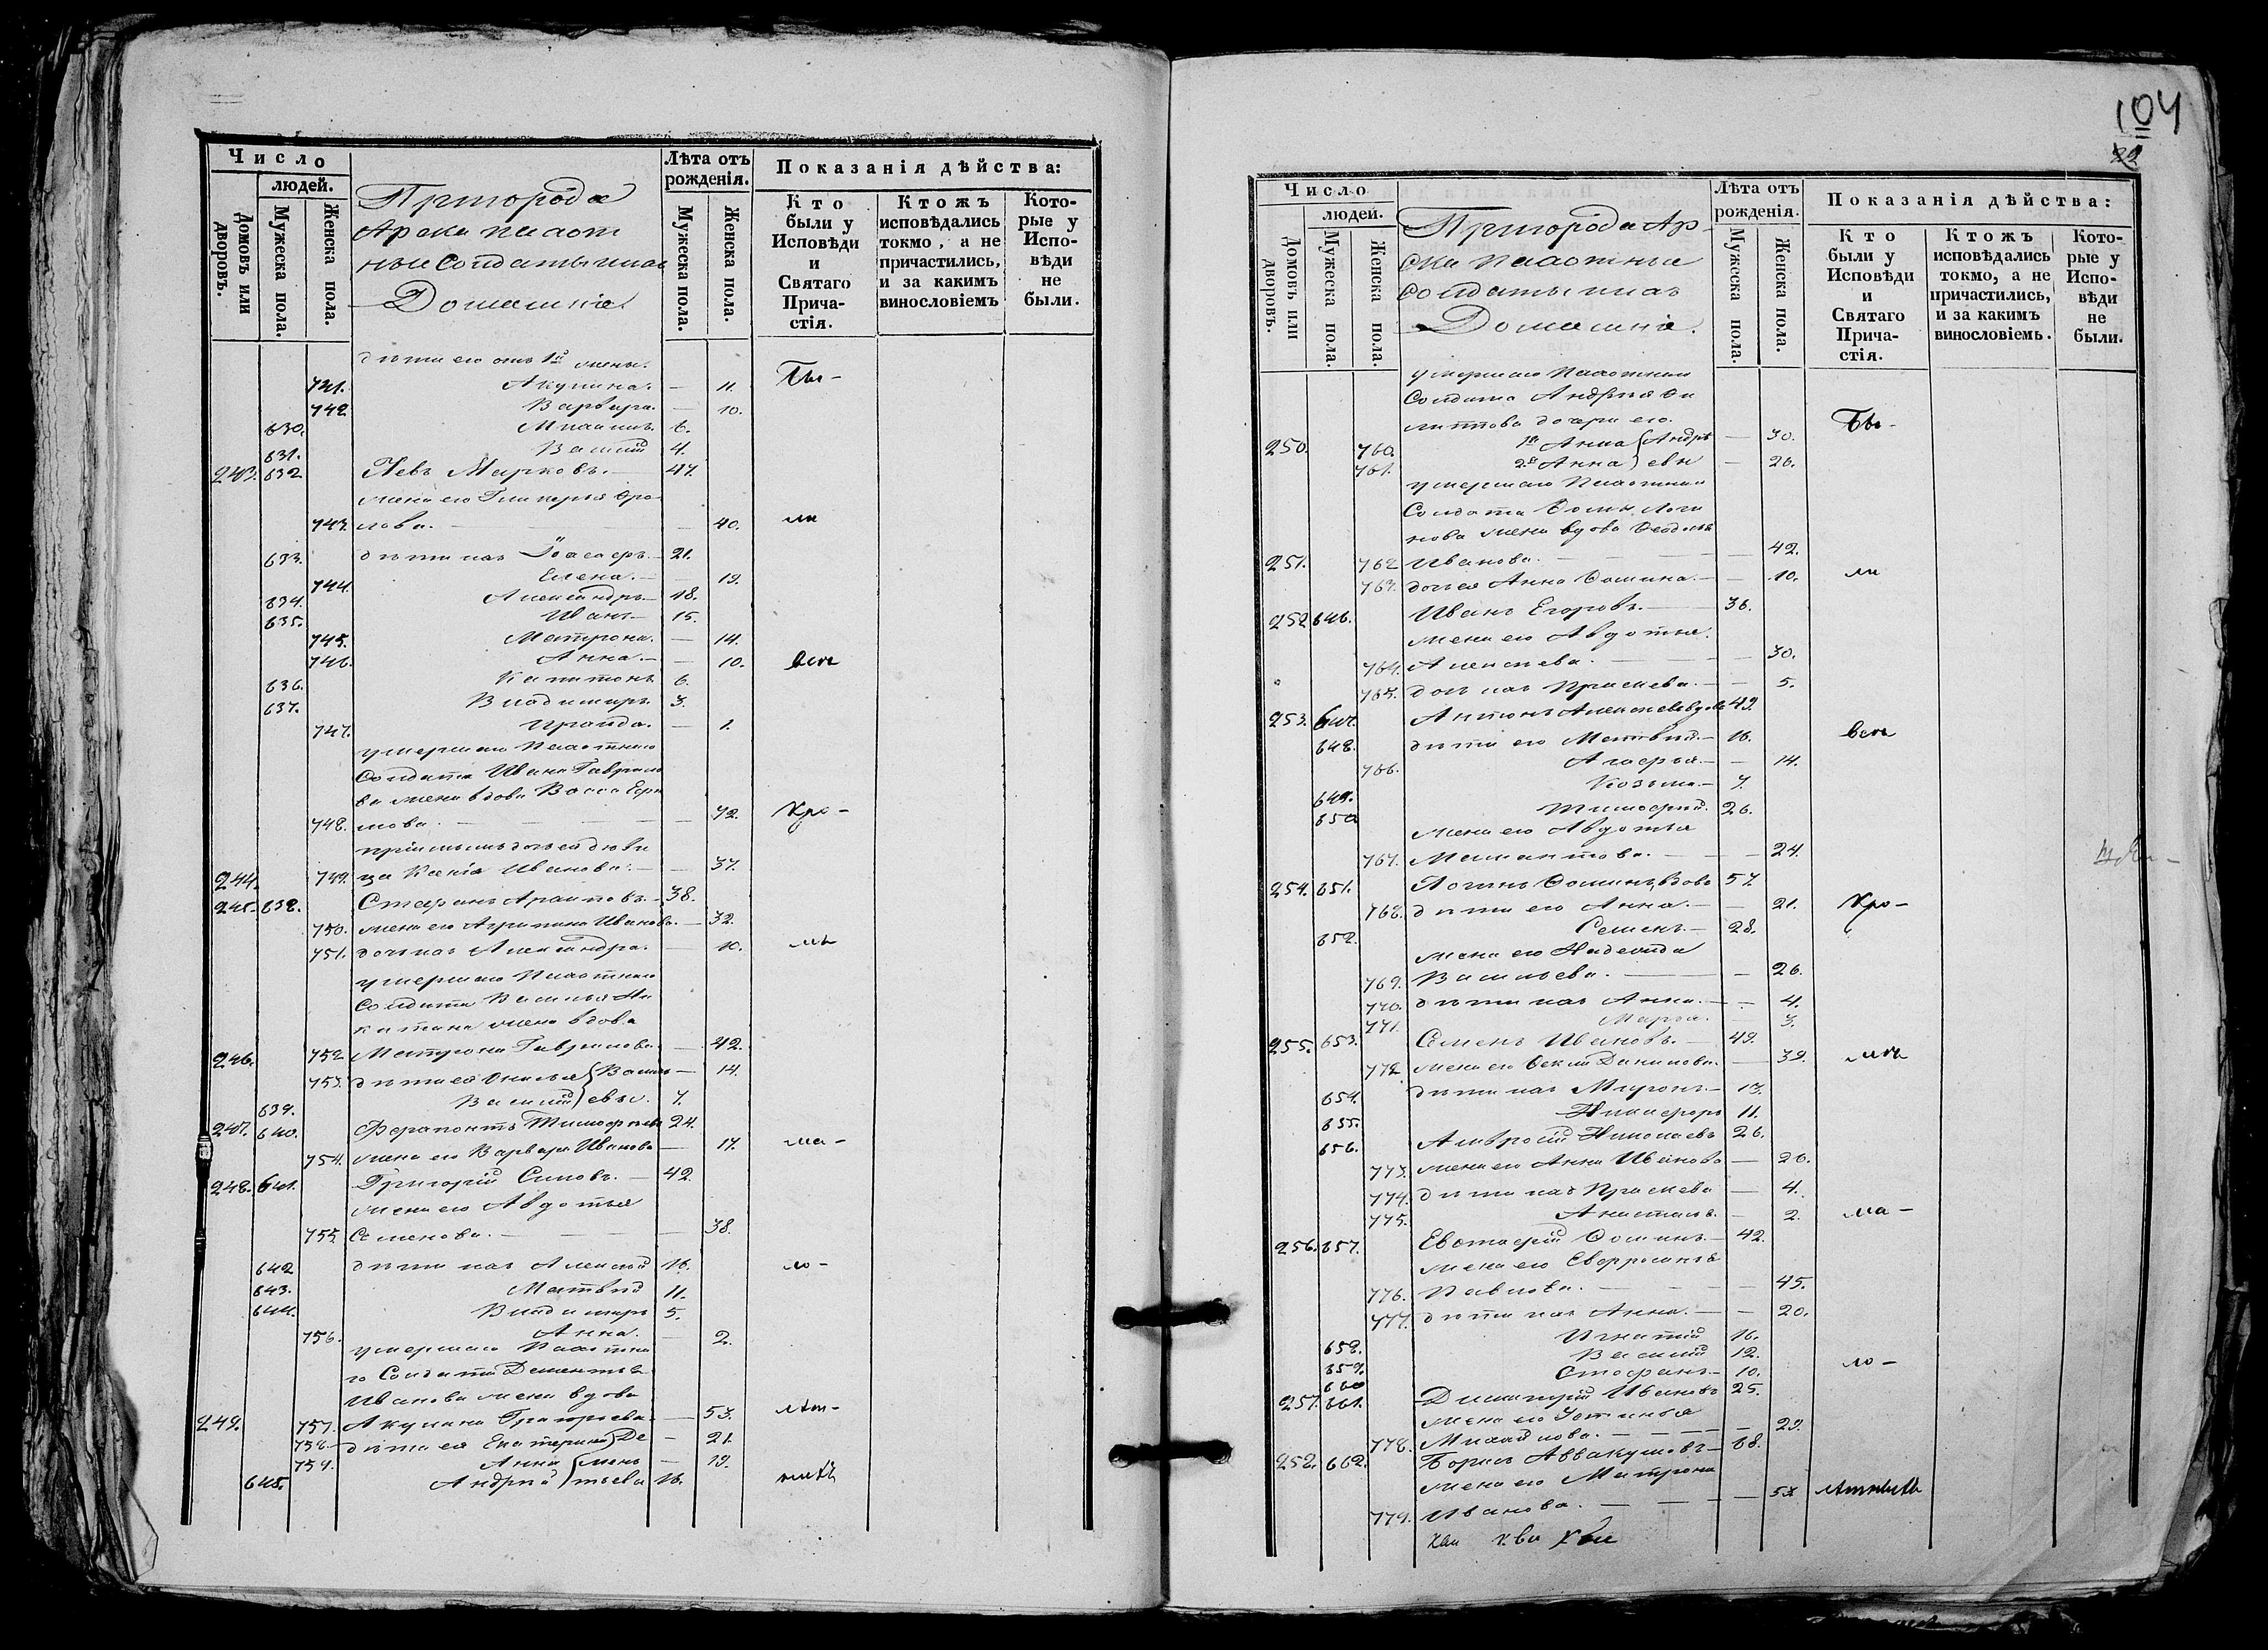 Число
людей.
Домовъ или дворовъ.
Мужеска пола.
Женска пола.
Пригорода
Арска пахот
ные Солдаты и ихъ
Домашніе.
Лѣта отъ рожденія.
Мужеска пола.
Женска пола.
Показанія дѣйства:
Кто были у Исповѣди и Святаго Прича-стія.
Ктожъ исповѣдались токмо, а не причастились, и за какимъ винословіемъ
Кото-рые у Испо-вѣди не были.
дѣти его отъ 1й жены.
741. Акулина. — 11. Бы-
742 Варвара. — 10.
630. Михаилъ 6.
631. Василій 4.
243. 632 Левъ Марковъ. — 47.
жена его Гликерья Фро
743. лова. — 40. ли
633. дѣти ихъ Іоасафъ. 21.
744. Елена. — 19.
634. Александръ. 18.
635. Иванъ — 15.
745. Матрона. — 14.
746. Анна. — — 10. всѣ
636. Капитонъ 6.
637. Владимиръ 3.
747. Ираида. — 1.
умершаго Пахотнаго
Солдата Ивана Гаврило
ва жена вдова Васса Ефи
748. мова. — 72. Кро-
пріемышъ дочь ея дѣви
244. 749. ца Ксенія Иванова. — 37.
245. 638. Стефанъ Архиповъ. — 38.
750. жена его Агрипина Иванова. — 32.
751. дочь ихъ Александра. — 10. мѣ
умершаго Пахотнаго
Солдата Василья Ни
китина жена вдова
246. 752 Матрона Гаврилова. — 42.
753. дѣти ея Василь — 14.
639. Василій евы. 7.
247. 640. Ферапонтъ Тимофѣевъ 24.
754. жена его Варвара Иванова — 17. ма-
248. 641. Григорій Силовъ. — 42.
жена его Авдотья
755. Семенова. — 38.
642 дѣти ихъ Алексѣй 16. ло-
643. Матвѣй 11.
644. Владимиръ 5.
756. Анна. — 2.
умершаго Пахотна
го Солдата Дементья
Иванова жена вдова
249. 757. Акулина Григорьева. — 53. лѣт-
758. дѣти ея Екатерина Де — 21.
759. Анна мень — 19.
645. Андрей тьевы 16. нихъ
104
22
Число
людей.
Домовъ или дворовъ.
Мужеска пола.
Женска пола.
Пригорода Ар
ска Пахотные
Солдаты и ихъ
Домашніе.
Лѣта отъ рожденія.
Мужеска пола.
Женска пола.
Показанія дѣйства:
Кто были у Исповѣди и Святаго Прича-стія.
Ктожъ исповѣдались токмо, а не причастились, и за какимъ винословіемъ.
Кото-рые у Испо-вѣди не были.
умершаго Пахотнаго
Солдата Андрея Фи
липпова дочери его.
250. 760. 1я Анна Андре — 30. Бы-
761. 2я Анна евы — 26.
умершаго Пахотнаго
Солдата Фомы Логи
нова жена вдова
251. 762 Иванова. — 42.
763. дочь ея Анна Фомина. — 10. ли
252 646. Иванъ Егоровъ. — 36.
жена его Авдотья
764. Алексѣева. — 30.
765. дочь ихъ Прасковья. — 5.
253. 647. Антонъ Алексѣевъ вдовъ 49.
648. дѣти его Матвѣй. — 16. всѣ
766. Агафья. — 14.
649. Козьма. — 7.
650. Тимофей. 26.
жена его Авдотья
767. Мамантова. — 24.
254. 651. Логинъ Фоминъ вдовъ 57
768. дѣти его Анна. — 21. Кро-
652. Семенъ. — 28.
жена его Надежда
769. Васильева. — 26.
770. дѣти ихъ Анна. — 4.
771. Марья. — 3.
255. 653. Семенъ Ивановъ. — 49.
772 жена его Данилова. — 39. мѣ
654. дѣти ихъ Миронъ. — 13.
655. Никифоръ 11.
656. Амвросій Николаевъ 26.
773. жена его Анна Иванова — 20.
774. дѣти ихъ Прасковья — 4.
775. — 2. ма-
256. 657. Евстафій Фоминъ. — 42.
жена его
776. Павлова. — 45.
777. дѣти ихъ Анна. — 20.
658. Игнатій 16.
659. Василій 12.
660 Стефанъ. — 10. ло-
257. 661. Димитрій Ивановъ 25.
жена его Устинья
778. Михайлова. — 23.
258. 662. Борисъ Аввакумовъ — 68.
жена его Матрона
779. Иванова. — 58